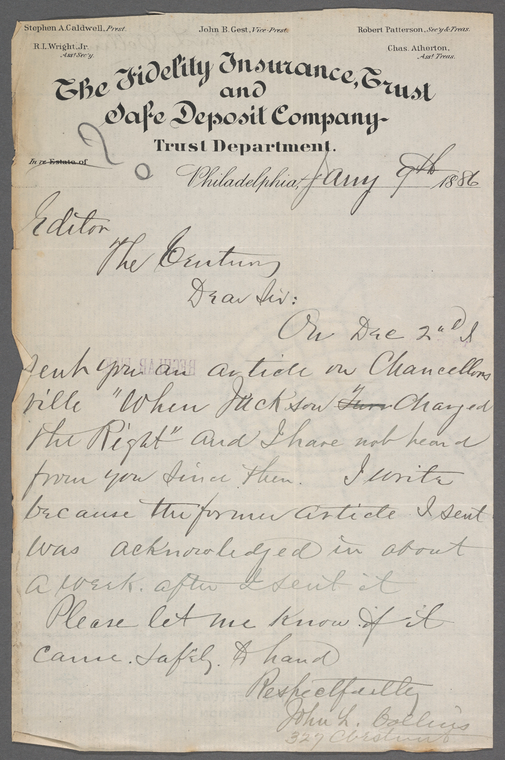 Stephen A. Caldwell, Prest. John B. Gest, Vice-Prest. Robert Patterson, Sec'y & Treas.
R.L. Wright, Jr. Asst Sec'y. Chas. Atherton, Asst Treas.
The Fidelity Insurance, Trust
and
Safe Deposit Company
Trust Department.
In re Estate of
?
Philadelphia, Jany 9th 1886
Editor
The Century
Dear Sir:
On Dec 2nd I
sent you an article on Chancellors
ville "When Jackson Turn Charged
the Right" and I have not heard
from you since then. I write
because the former article I sent
was acknowledged in about
a week after I sent it
Please let me know if it
came safely to hand
Respectfully
John L. Collins
327 Chestnut